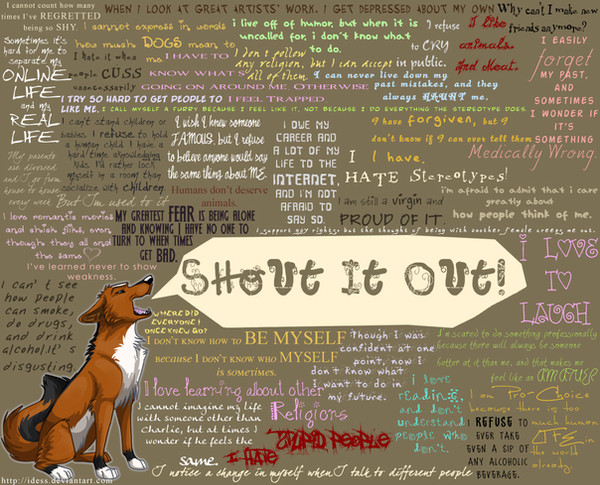 I cannot count how many
times I've REGRETTED
being so SHY.
WHEN I LOOK AT GREAT ARTISTS' WORK, I GET DEPRESSED ABOUT MY OWN
Why can't I make new
friends anymore?
I cannot express in words
how much DOGS mean to
me.
i live off of humor, but when it is
uncalled for, i don't know what
to do.
I refuse
to CRY
in public.
I like
animals.
And Meat.
I EASILY
forget
MY PAST,
AND
SOMETIMES
I WONDER IF
IT'S
SOMETHING
Medically Wrong.
Sometimes it's
hard for me to
separate my
ONLINE
LIFE
and my
REAL
LIFE.
I hate it when
people CUSS
unnecessarily
I HAVE TO
KNOW WHAT'S
GOING ON AROUND ME, OTHERWISE
I FEEL TRAPPED
I don't follow
any religion, but I can accept
all of them.
I can never live down my
past mistakes, and they
always HAUNT me.
I TRY SO HARD TO GET PEOPLE TO
LIKE ME.
I CALL MYSELF A FURRY BECAUSE I FEEL LIKE IT, NOT BECAUSE I DO EVERYTHING THE STEREOTYPE DOES.
I can't stand children or
babies. I refuse to hold
a human child. I have a
hard time acknowledging
kids. I'd rather lock
myself in a room than
socialize with children.
I wish I knew someone
FAMOUS, but I refuse
to believe anyone would say
the same thing about ME.
I OWE MY
CAREER AND
A LOT OF MY
LIFE TO THE
INTERNET,
AND I'M NOT
AFRAID TO
SAY SO.
I have forgiven, but I
don't know if I can ever tell them
I have.
I
HATE Stereotypes!
My parents
are divorced
and I go from
house to house
every week.
But I'm used to it.
Humans don't deserve
animals.
I am still a virgin and
PROUD OF IT.
i'm afraid to admit that i care
greatly about
how people think of me.
I love romantic movies
and chick flicks, even
though they all end
the same ♡
MY GREATEST FEAR IS BEING ALONE
AND KNOWING I HAVE NO ONE TO
TURN TO WHEN TIMES
GET BAD.
I support gay rights, but the thought of being with another female creeps me out.
I've learned never to show
weakness.
I LOVE
TO
LAUGH
Shout It Out!
I can't see
how people
can smoke,
do drugs,
and drink
alcohol. it's
disgusting.
WHERE DID
EVERYONE I
ONCE KNEW GO?
I DON'T KNOW HOW TO BE MYSELF
because I DON'T KNOW WHO MYSELF
is sometimes.
Though I was
confident at one
point, now i
don't know what
i want to do in
my future.
I'm scared to do something professionally
because there will always be someone
better at it than me, and that makes me
feel like an AMATUER
I love learning about other
Religions
I cannot imagine my life
with someone other than
Charlie, but at times I
wonder if he feels the
same.
i love
reading,
and don't
understand
people who
don't.
I am Pro-Choice
because there is too
much human
LIFE in
the world
already.
I REFUSE TO
EVER TAKE
EVEN A SIP OF
ANY ALCOHOLIC
BEVERAGE.
I HATE STUPID PEOPLE
I notice a change in myself when I talk to different people
http://idess.deviantart.com